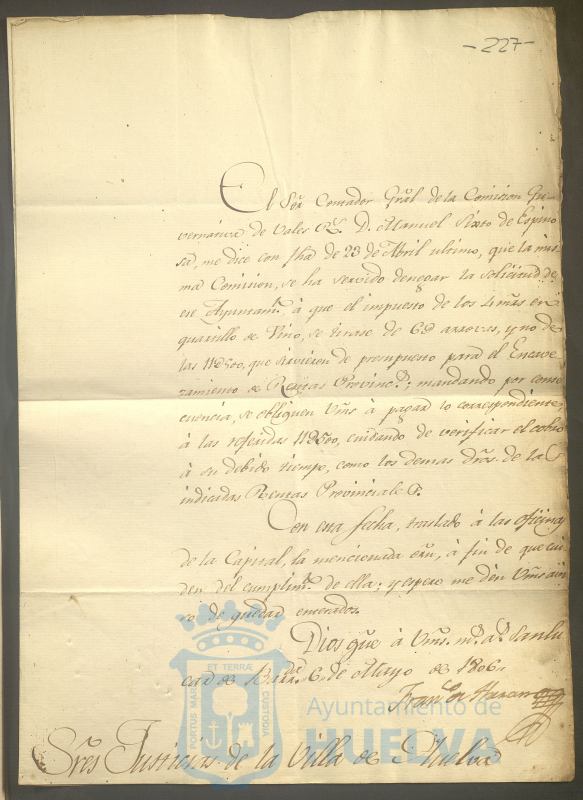 -227-
El Sõr Contador Gral de la Comision Gu-
vernativa de Vales Rs. D. Manuel Sixto de Espino
sa, me dice con fha de 23 de Abril ultimo, que la mis
ma Comision, se ha servido denegar la solicitud de
ese Ayuntamto, à que el impuesto de los 4 mrs en
quartillo de Vino, se tirase de 6 arrovas, y no de
las 11500, que sirvieron de presupuesto para el Encave-
zamiento de Rentas Provincs; mandando por conse
cuencia, se obliguen Vms à pagar lo correspondiente
à las referidas 11500, cuidando de verificar el cobro
à su debido tiempo, como los demas dros de las
indicadas Rentas Provinciales.
Con esta fecha, traslado à las oficinas
de la Capital, la mencionada orn, à fin de que cui
den del cumplimto de ella; y espero me dén Vms avi
so de quedar enterados.
Dios gue à Vms ms as Sanlu
car de Barrda 6 de Mayo de 1806.
Sres Justicias de la Villa de Huelva
PORTUS MARIS ET TERRÆ CUSTODIA
Ayuntamiento de
HUELVA